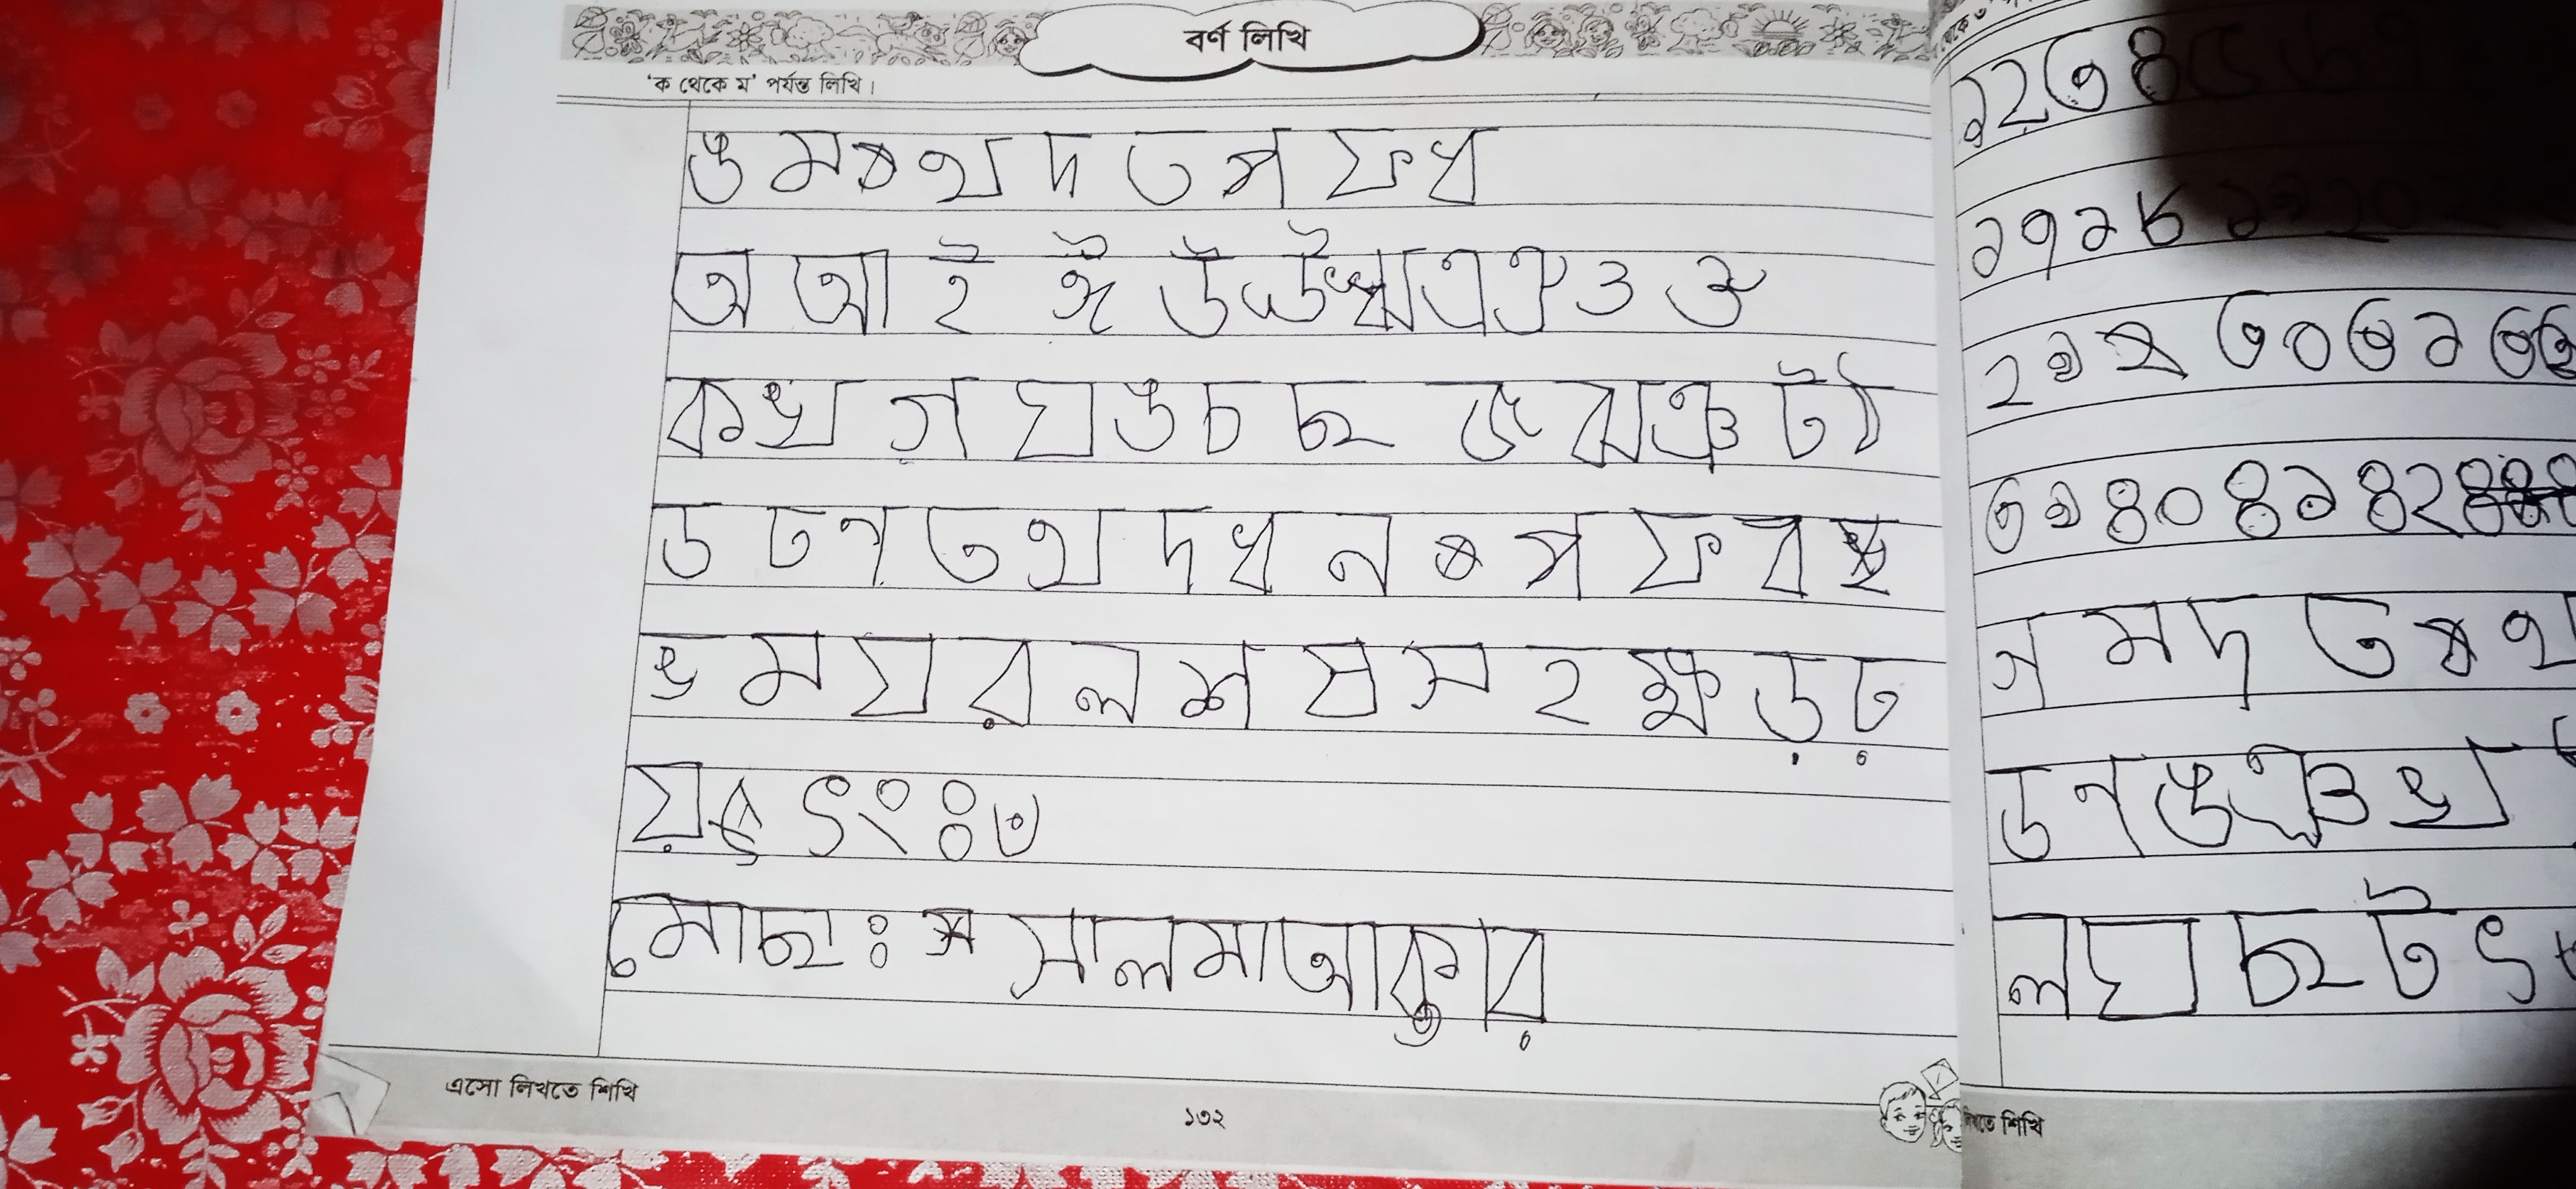 বর্ণ লিখি
'ক থেকে ম' পর্যন্ত লিখি।
ঙ ম থ দ ত প ফ ধ
অ আ ই ঈ উ ঊ ঋ এ ঐ ও ঔ
ক খ গ ঘ ঙ চ ছ জ ঝ ঞ ট ঠ
ড ঢ ণ ত থ দ ধ ন প ফ ব
ভ ম য র ল শ ষ স হ ক্ষ ড় ঢ়
য় ৎ ং ঃ ঁ
মোছাঃ সালমা আক্তার
এসো লিখতে শিখি
১৩২
১ ২ ৩ ৪
১৭ ১৮ ১৯ ২০
২১ ৩০ ৩১
৩৯ ৪০ ৪১ ৪২
গ ম দ ত থ
ড ণ ঙ ঞ খ
ল ঘ ছ ট ৎ
শিখি